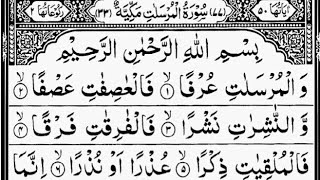 اٰیاتُهَا ٥٠ (٧٧) سُوْرَةُ الْمُرْسَلٰتِ مَكِّیَّةٌ (٣٣) رُكُوْعَاتُهَا ٢
بِسْمِ اللهِ الرَّحْمٰنِ الرَّحِیْمِ
وَ الْمُرْسَلٰتِ عُرْفًا ۙ﴿١﴾ فَالْعٰصِفٰتِ عَصْفًا ۙ﴿٢﴾
وَّ النّٰشِرٰتِ نَشْرًا ۙ﴿٣﴾ فَالْفٰرِقٰتِ فَرْقًا ۙ﴿٤﴾
فَالْمُلْقِیٰتِ ذِكْرًا ۙ﴿٥﴾ عُذْرًا اَوْ نُذْرًا ۙ﴿٦﴾ اِنَّمَا